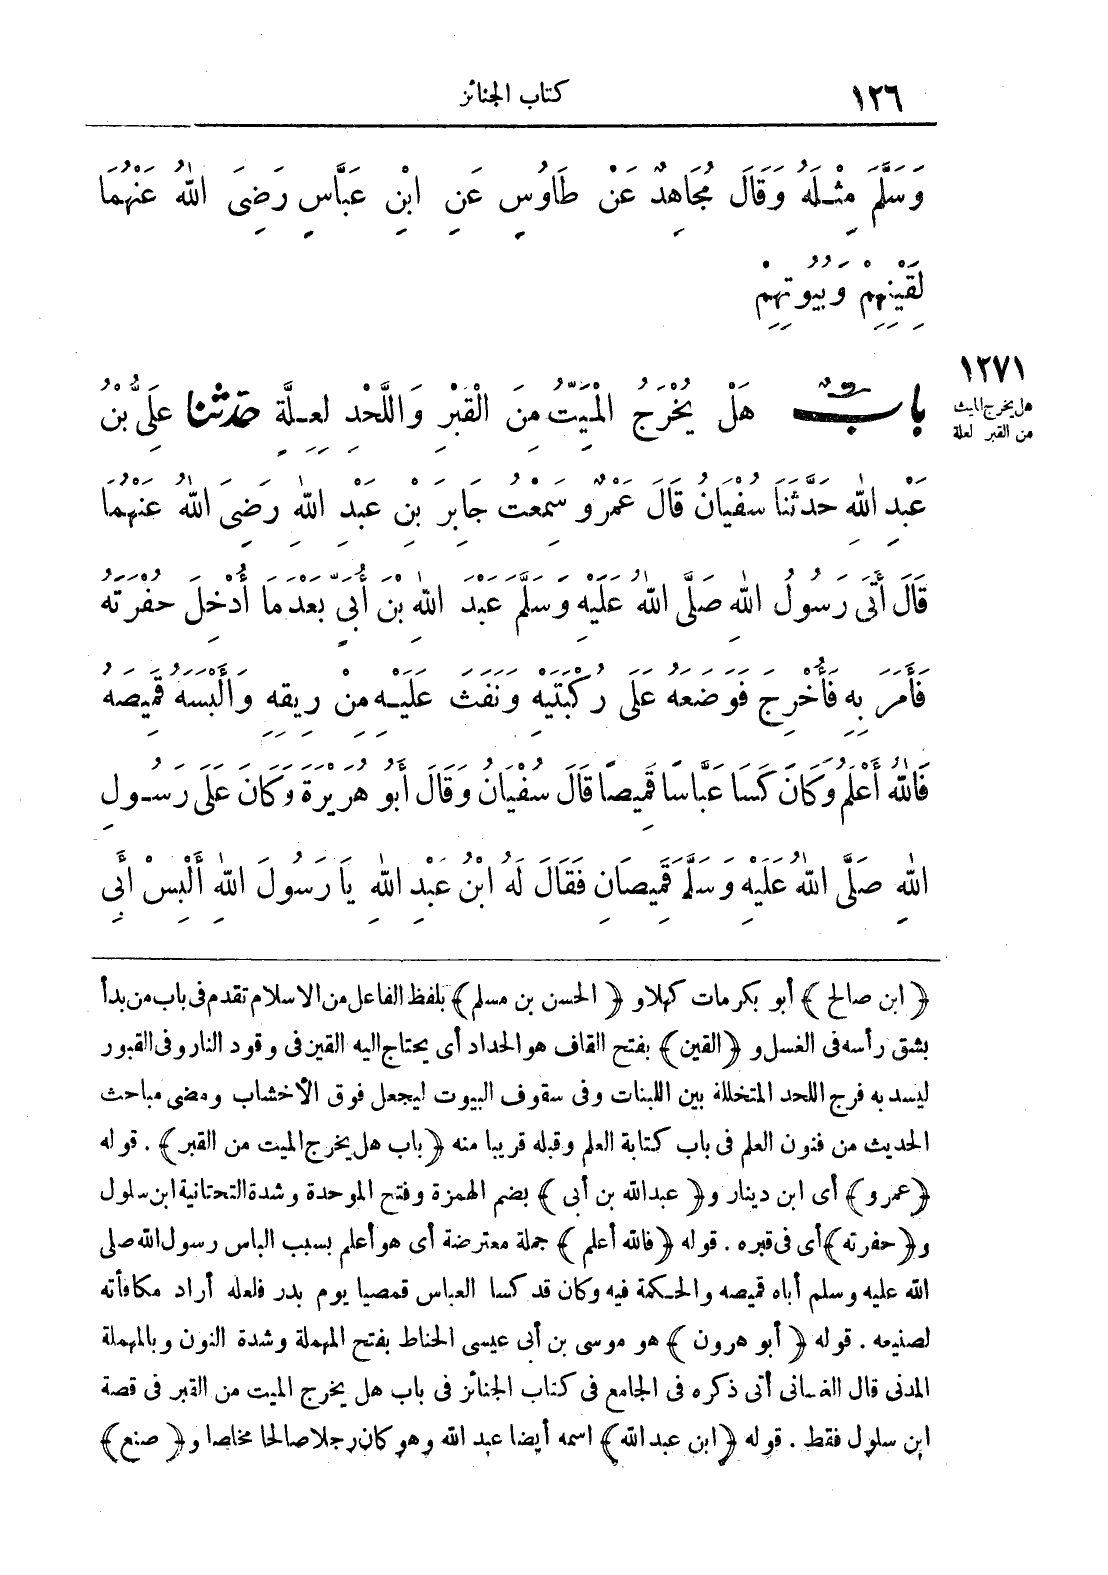 ١٢٦ كتاب الجنائز
وَسَلَّمَ مِثْلَهُ وَقَالَ مُجَاهِدٌ عَنْ طَاوُسٍ عَنِ ابْنِ عَبَّاسٍ رَضِىَ اللهُ عَنْهُمَا
لِقَيْنِهِمْ وَبُيُوتِهِمْ
١٢٧١
هل يخرج الميت
من القبر لعلة
بابٌ هَلْ يُخْرَجُ الْمَيِّتُ مِنَ الْقَبْرِ وَاللَّحْدِ لِعِلَّةٍ حَدَّثَنَا عَلِىُّ بْنُ
عَبْدِ اللهِ حَدَّثَنَا سُفْيَانُ قَالَ عَمْرٌو سَمِعْتُ جَابِرَ بْنَ عَبْدِ اللهِ رَضِىَ اللهُ عَنْهُمَا
قَالَ أَتَى رَسُولُ اللهِ صَلَّى اللهُ عَلَيْهِ وَسَلَّمَ عَبْدَ اللهِ بْنَ أُبَىٍّ بَعْدَ مَا أُدْخِلَ حُفْرَتَهُ
فَأَمَرَ بِهِ فَأُخْرِجَ فَوَضَعَهُ عَلَى رُكْبَتَيْهِ وَنَفَثَ عَلَيْهِ مِنْ رِيقِهِ وَأَلْبَسَهُ قَمِيصَهُ
فَاللهُ أَعْلَمُ وَكَانَ كَسَا عَبَّاسًا قَمِيصًا قَالَ سُفْيَانُ وَقَالَ أَبُو هُرَيْرَةَ وَكَانَ عَلَى رَسُولِ
اللهِ صَلَّى اللهُ عَلَيْهِ وَسَلَّمَ قَمِيصَانِ فَقَالَ لَهُ ابْنُ عَبْدِ اللهِ يَا رَسُولَ اللهِ أَلْبِسْ أَبِى
﴿ابن صالح﴾ أبو بكر مات كهلا و﴿الحسن بن مسلم﴾ بلفظ الفاعل من الاسلام تقدم فى باب من بدأ
بشق رأسه فى الغسل و﴿القين﴾ بفتح القاف هو الحداد أى يحتاج اليه القين فى وقود النار وفى القبور
ليسد به فرج اللحد المتخللة بين اللبنات وفى سقوف البيوت ليجعل فوق الأخشاب ومضى مباحث
الحديث من فنون العلم فى باب كتابة العلم وقبله قريبا منه ﴿باب هل يخرج الميت من القبر﴾ . قوله
﴿عمرو﴾ أى ابن دينار و﴿عبد الله بن أبى﴾ بضم الهمزة وفتح الموحدة وشدة التحتانية ابن سلول
و﴿حفرته﴾ أى فى قبره . قوله ﴿فالله أعلم﴾ جملة معترضة أى هو أعلم بسبب الباس رسول الله صلى
الله عليه وسلم أباه قميصه والحكمة فيه وكان قد كسا العباس قمصيا يوم بدر فلعله أراد مكافأته
لصنيعه . قوله ﴿أبو هرون﴾ هو موسى بن أبى عيسى الحناط بفتح المهملة وشدة النون وبالمهملة
المدنى قال الغسانى أتى ذكره فى الجامع فى كتاب الجنائز فى باب هل يخرج الميت من القبر فى قصة
ابن سلول فقط . قوله ﴿ابن عبد الله﴾ اسمه أيضا عبد الله وهو كان رجلا صالحا مخلصا و﴿صنع﴾